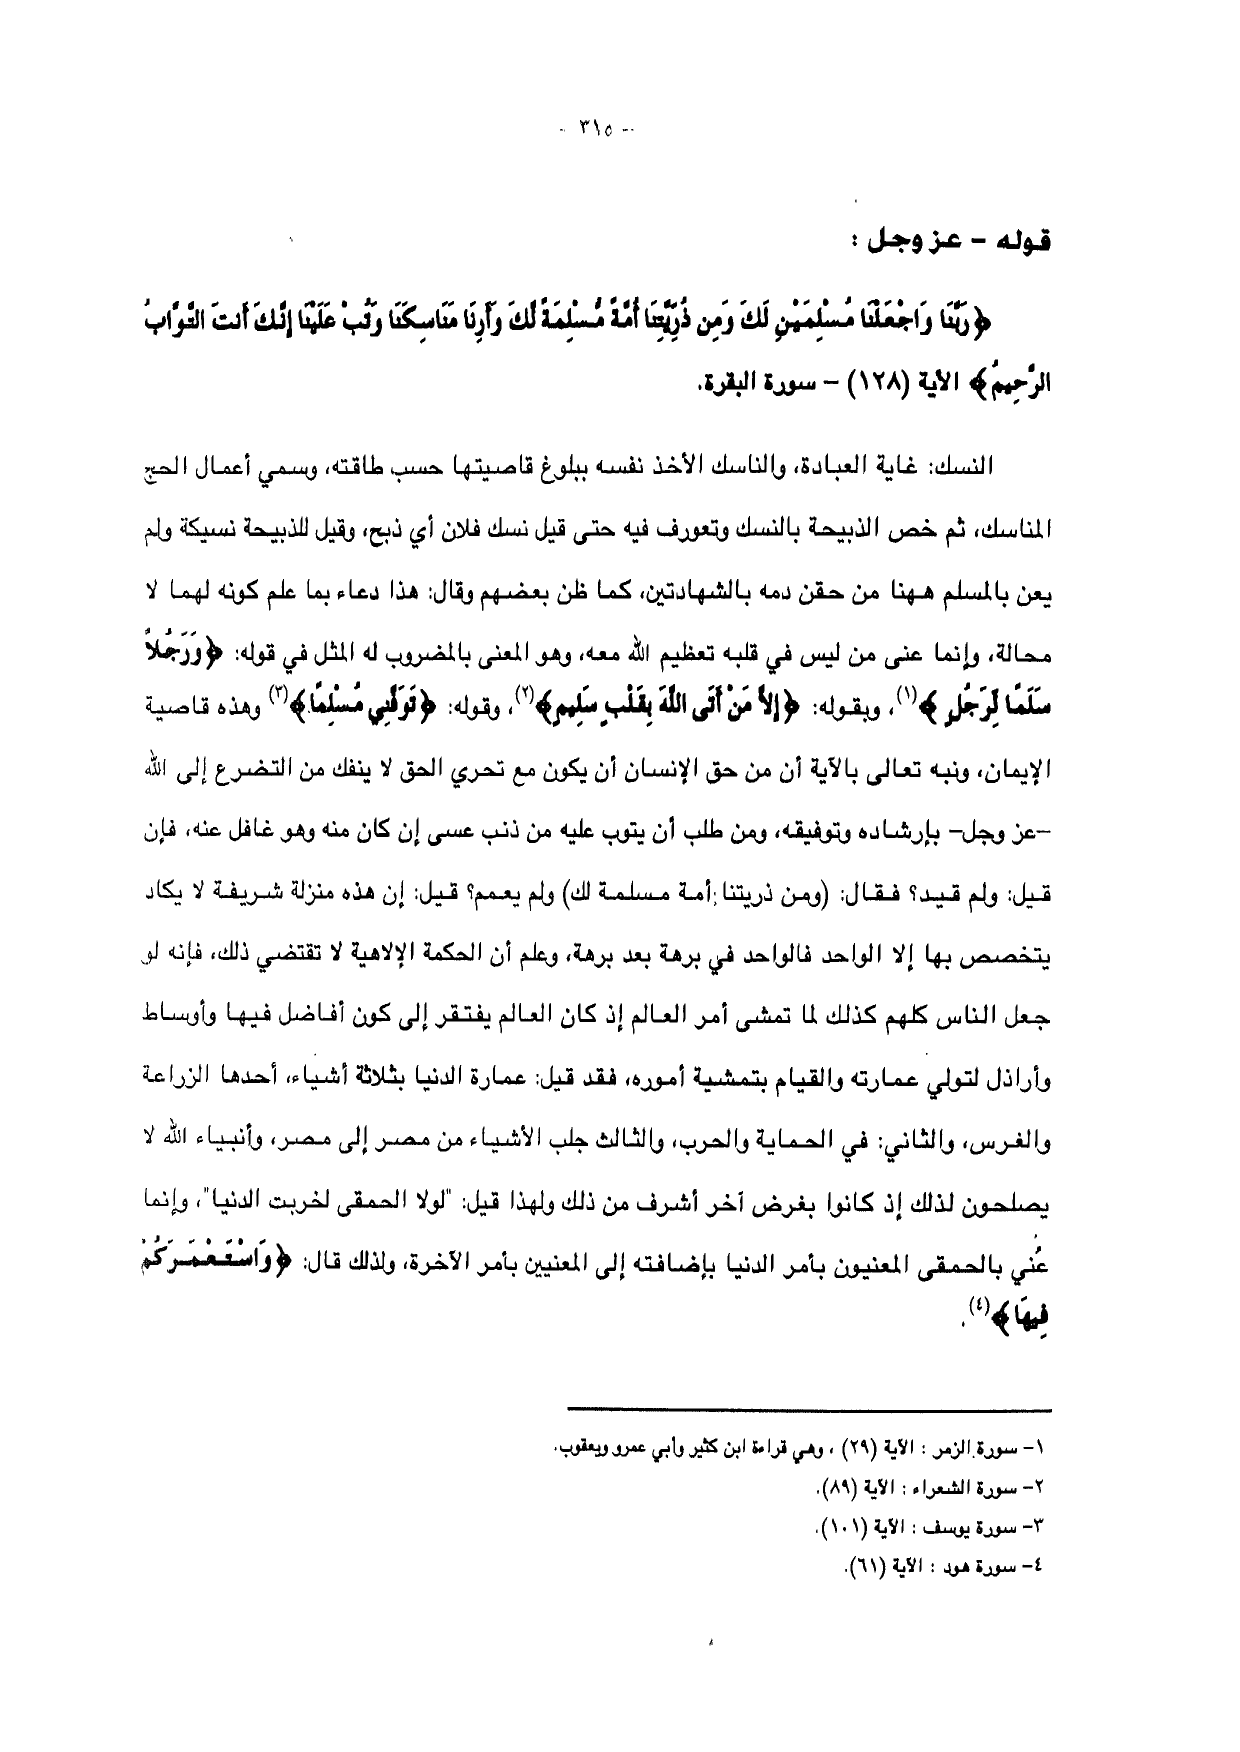 - ٣١٥ -
قوله - عز وجل :
﴿رَبَّنَا وَاجْعَلْنَا مُسْلِمَيْنِ لَكَ وَمِن ذُرِّيَّتِنَا أُمَّةً مُّسْلِمَةً لَّكَ وَأَرِنَا مَنَاسِكَنَا وَتُبْ عَلَيْنَا إِنَّكَ أَنتَ التَّوَّابُ
الرَّحِيمُ﴾ الآية (١٢٨) - سورة البقرة.
النسك: غاية العبادة، والناسك الأخذ نفسه ببلوغ قاصيتها حسب طاقته، وسمي أعمال الحج
المناسك، ثم خص الذبيحة بالنسك وتعورف فيه حتى قيل نسك فلان أي ذبح، وقيل للذبيحة نسيكة ولم
يعن بالمسلم ههنا من حقن دمه بالشهادتين، كما ظن بعضهم وقال: هذا دعاء بما علم كونه لهما لا
محالة، وإنما عنى من ليس في قلبه تعظيم الله معه، وهو المعنى بالمضروب له المثل في قوله: ﴿وَرَجُلاً
سَلَمًا لِّرَجُلٍ﴾(١)، وبقوله: ﴿إِلاَّ مَنْ أَتَى اللَّهَ بِقَلْبٍ سَلِيمٍ﴾(٢)، وقوله: ﴿تَوَفَّنِي مُسْلِمًا﴾(٣) وهذه قاصية
الإيمان، ونبه تعالى بالآية أن من حق الإنسان أن يكون مع تحري الحق لا ينفك من التضرع إلى الله
-عز وجل- بإرشاده وتوفيقه، ومن طلب أن يتوب عليه من ذنب عسى إن كان منه وهو غافل عنه، فإن
قيل: ولم قيد؟ فقال: (ومن ذريتنا أمة مسلمة لك) ولم يعمم؟ قيل: إن هذه منزلة شريفة لا يكاد
يتخصص بها إلا الواحد فالواحد في برهة بعد برهة، وعلم أن الحكمة الإلاهية لا تقتضي ذلك، فإنه لو
جعل الناس كلهم كذلك لما تمشى أمر العالم إذ كان العالم يفتقر إلى كون أفاضل فيها وأوساط
وأراذل لتولي عمارته والقيام بتمشية أموره، فقد قيل: عمارة الدنيا بثلاثة أشياء، أحدها الزراعة
والغرس، والثاني: في الحماية والحرب، والثالث جلب الأشياء من مصر إلى مصر، وأنبياء الله لا
يصلحون لذلك إذ كانوا بغرض آخر أشرف من ذلك ولهذا قيل: "لولا الحمقى لخربت الدنيا"، وإنما
عُني بالحمقى المعنيون بأمر الدنيا بإضافته إلى المعنيين بأمر الآخرة، ولذلك قال: ﴿وَاسْتَعْمَرَكُمْ
فِيهَا﴾(٤).
١- سورة الزمر : الآية (٢٩) ، وهي قراءة ابن كثير وأبي عمرو ويعقوب.
٢- سورة الشعراء : الآية (٨٩).
٣- سورة يوسف : الآية (١٠١).
٤- سورة هود : الآية (٦١).